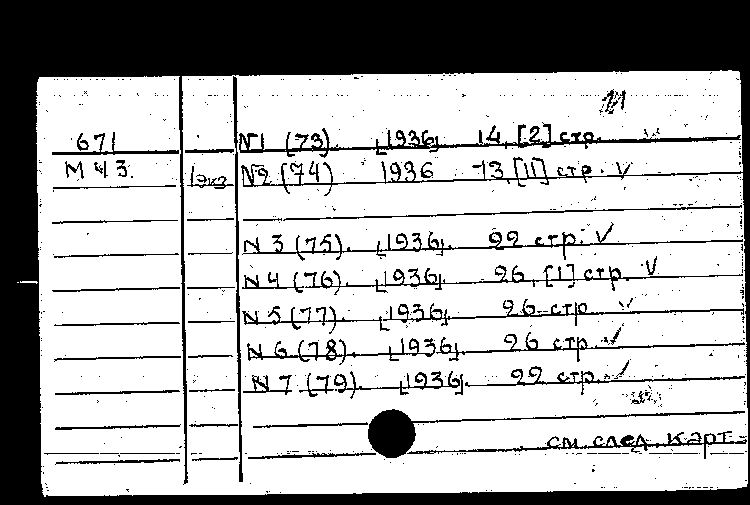 671 N1 (73). [1936] 14, [2] стр. V
М 43. 1экз N2 (74) 1936 13, [11] стр. V
N 3 (75). [1936]. 22 стр. V
N 4 (76). [1936]. 26, [1] стр. V
N 5 (77). [1936]. 26 стр V
N 6 (78). [1936]. 26 стр. V
N 7 (79). [1936]. 22 стр. V
см след. карт.